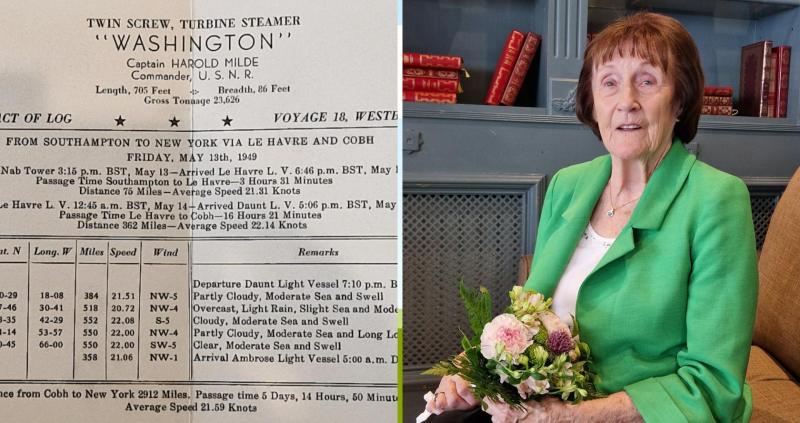 TWIN SCREW, TURBINE STEAMER
"WASHINGTON"
Captain HAROLD MILDE
Commander, U. S. N. R.
Length, 705 Feet Breadth, 86 Feet
Gross Tonnage 23,626
ACT OF LOG ★ ★ ★ VOYAGE 18, WESTB
FROM SOUTHAMPTON TO NEW YORK VIA LE HAVRE AND COBH
FRIDAY, MAY 13th, 1949
Nab Tower 3:15 p.m. BST, May 13—Arrived Le Havre L. V. 6:46 p.m. BST, May 1
Passage Time Southampton to Le Havre—3 Hours 31 Minutes
Distance 75 Miles—Average Speed 21.31 Knots
Le Havre L. V. 12:45 a.m. BST, May 14—Arrived Daunt L. V. 5:06 p.m. BST, May
Passage Time Le Havre to Cobh—16 Hours 21 Minutes
Distance 362 Miles—Average Speed 22.14 Knots
at. N Long. W Miles Speed Wind Remarks
Departure Daunt Light Vessel 7:10 p.m. B
0-29 18-08 384 21.51 NW-5 Partly Cloudy, Moderate Sea and Swell
7-46 30-41 518 20.72 NW-4 Overcast, Light Rain, Slight Sea and Mode
3-35 42-29 552 22.08 S-5 Cloudy, Moderate Sea and Swell
1-14 53-57 550 22.00 NW-4 Partly Cloudy, Moderate Sea and Long Lo
0-45 66-00 550 22.00 SW-5 Clear, Moderate Sea and Swell
358 21.06 NW-1 Arrival Ambrose Light Vessel 5:00 a.m. D
nce from Cobh to New York 2912 Miles. Passage time 5 Days, 14 Hours, 50 Minut
Average Speed 21.59 Knots